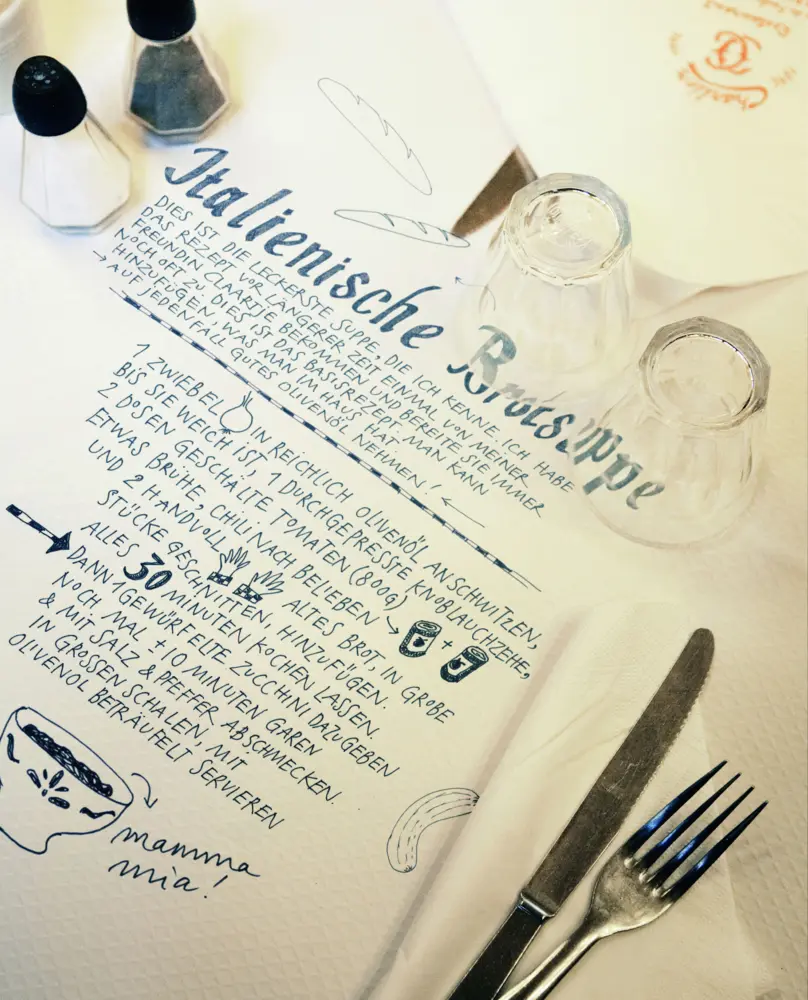 Restaurant
Chartier
Italienische Brotsuppe
DIES IST DIE LECKERSTE SUPPE, DIE ICH KENNE. ICH HABE
DAS REZEPT VOR LÄNGERER ZEIT EINMAL VON MEINER
FREUNDIN CLAARTJE BEKOMMEN UND BEREITE SIE IMMER
NOCH OFT ZU. DIES IST DAS BASISREZEPT. MAN KANN
HINZUFÜGEN, WAS MAN IM HAUS HAT
→ AUF JEDENFALL GUTES OLIVENÖL NEHMEN! ←
1 ZWIEBEL IN REICHLICH OLIVENÖL ANSCHWITZEN,
BIS SIE WEICH IST, 1 DURCHGEPRESSTE KNOBLAUCHZEHE,
2 DOSEN GESCHÄLTE TOMATEN (800G)
ETWAS BRÜHE, CHILI NACH BELIEBEN
UND 2 HANDVOLL ALTES BROT, IN GROBE
STÜCKE GESCHNITTEN, HINZUFÜGEN.
ALLES 30 MINUTEN KOCHEN LASSEN.
DANN 1 GEWÜRFELTE ZUCCHINI DAZUGEBEN
NOCH MAL ± 10 MINUTEN GAREN
& MIT SALZ & PFEFFER ABSCHMECKEN.
IN GROSSEN SCHALEN, MIT
OLIVENÖL BETRÄUFELT SERVIEREN
mamma
mia!